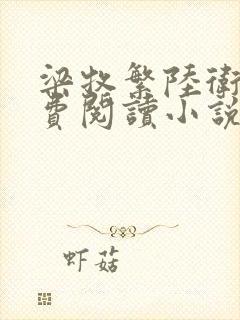 梁牧繁陸衛
費閱讀小說
虾菇